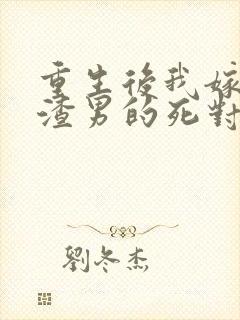 重生後我嫁
渣男的死對
劉冬杰